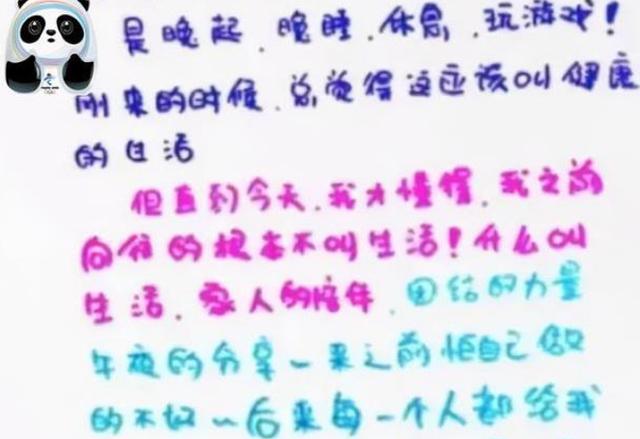 是晚起、晚睡、休息、玩游戏！
刚来的时候、总觉得这应该叫健康
的生活
但直到今天、我才懂得、我之前
向往的根本不叫生活！什么叫
生活、家人的陪伴、团结的力量
午夜的分享一来之前怕自己做
的不好一后来每一个人都给我